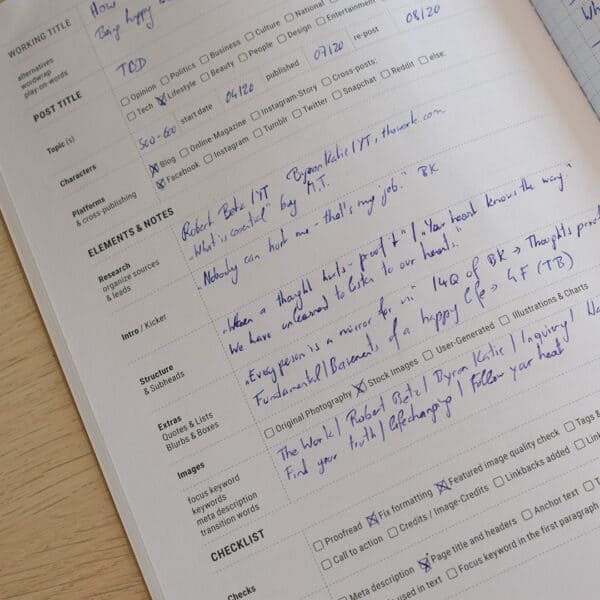 WORKING TITLE How
alternatives
wordwrap
play-on-words
Being happy
POST TITLE TBD
Topic (s)
☐ Opinion ☐ Politics ☐ Business ☐ Culture ☐ National
☐ Tech ☒ Lifestyle ☐ Beauty ☐ People ☐ Design ☐ Entertainment
Characters 500-600 start date 04/20 published 07/20 re-post 08/20
Platforms
& cross-publishing
☒ Blog ☐ Online-Magazine ☐ Instagram-Story ☐ Cross-posts:
☒ Facebook ☐ Instagram ☐ Tumblr ☐ Twitter ☐ Snapchat ☐ Reddit ☐ else:
ELEMENTS & NOTES
Research
organize sources
& leads
Robert Betz/YT Byron Katie/YT, thework.com
„What is essential" by M.T.
Intro / Kicker
„Nobody can hurt me - that's my job." BK
Structure
& Subheads
„When a thought hurts - proof it" / „Your heart knows the way."
We have unlearned to listen to our hearts."
Extras
Quotes & Lists
Blurbs & Boxes
„Every person is a mirror for us" / 4Q of BK → Thoughts proof
Fundamental / Basements of a happy life → GF (TB)
Images
☐ Original Photography ☒ Stock Images ☐ User-Generated ☐ Illustrations & Charts
focus keyword
keywords
meta description
transition words
The Work / Robert Betz / Byron Katie / Inquiry /
Find your truth / lifechanging / Follow your heart
CHECKLIST
Checks
☐ Proofread ☒ Fix formatting ☒ Featured image quality check ☐ Tags &
☐ Call to action ☐ Credits / Image-Credits ☐ Linkbacks added ☐
☐ Meta description ☒ Page title and headers ☐ Anchor text ☐
used in text ☐ Focus keyword in the first paragraph